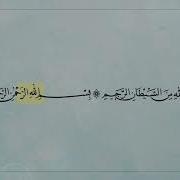 للهِ مِنَ الشَّيْطَانِ الرَّجِيمِ ۞ بِسْمِ اللهِ الرَّحْمٰنِ